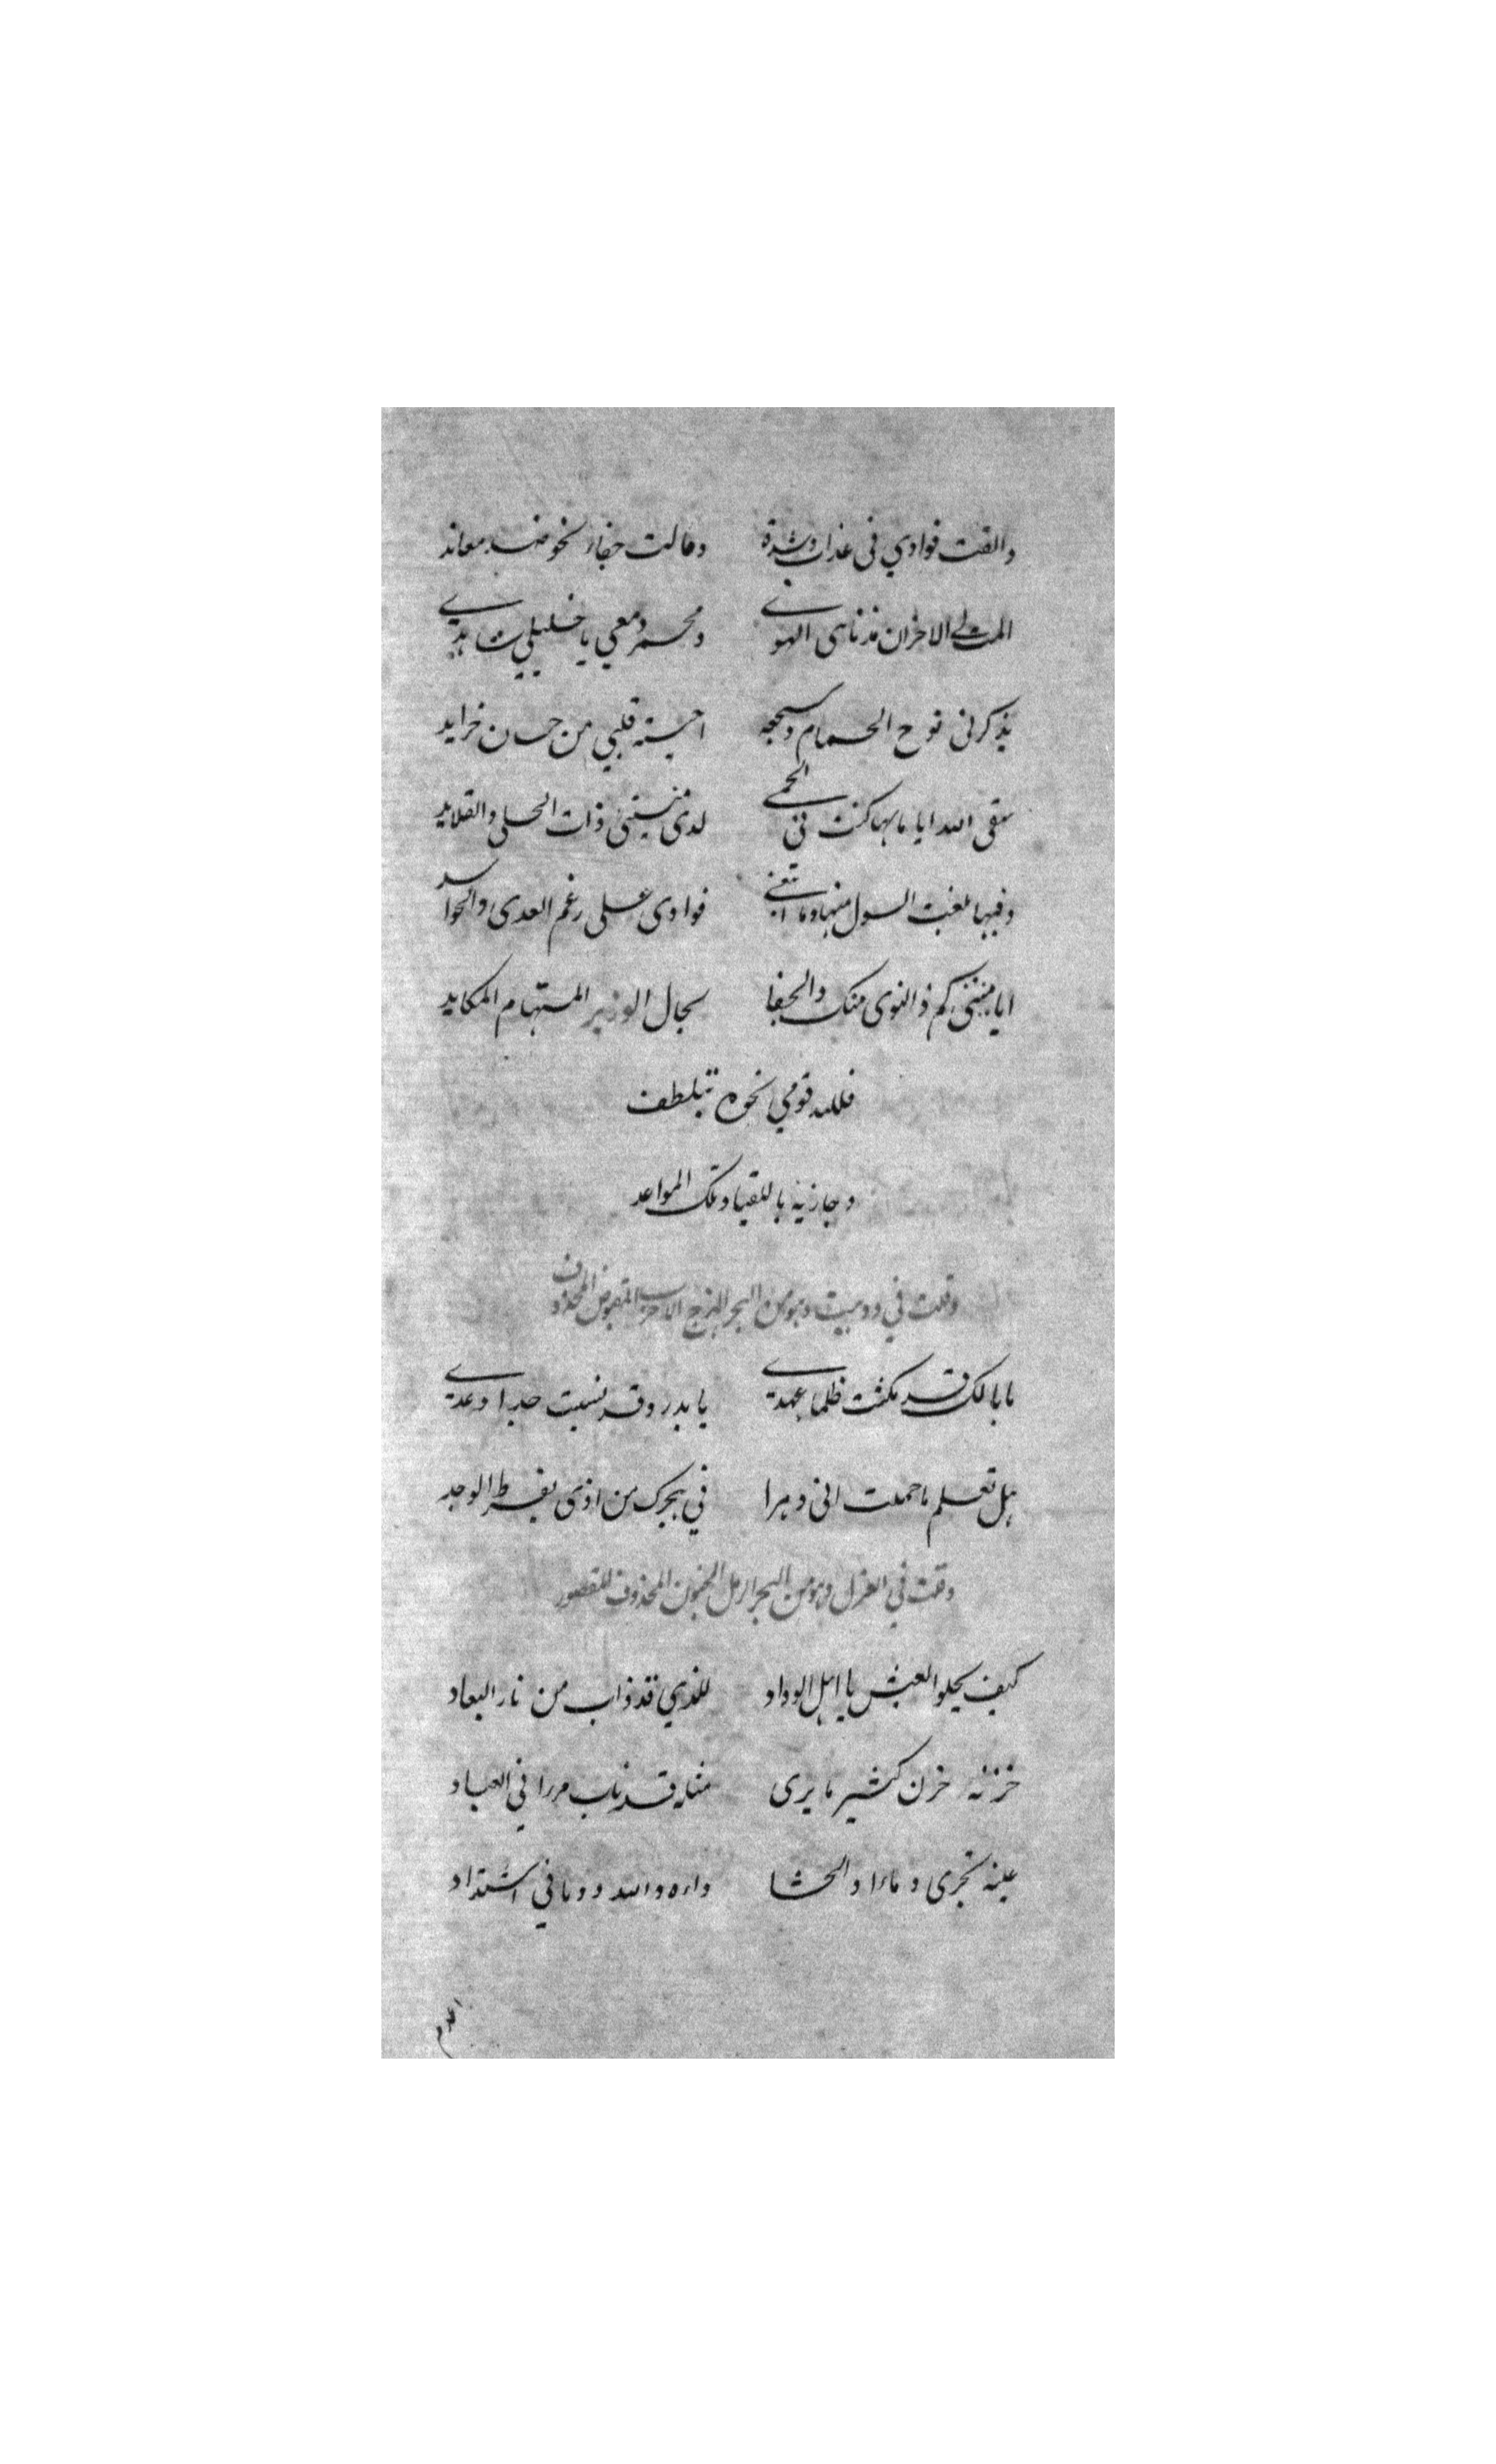 والقت فوادي في عذاب وشدة ومالت جفاء نحو ضد معاند
المت لي الاحزان مذ تناهى الهوى ومحمر دمعي يا خليلي شاهدي
يذكرني نوح الحمام وسجعه احبة قلبي من حسان خرايد
سقى الله اياما بها كنت في الحمى لدى منيتي ذات الحلي والقلايد
وفيها بلغت السول منها وما ابتغى فوادي على رغم العدى والحواسد
ايا منيتي كم ذا النوى منك والجفا بحال الوزير المستهام المكايد
فلله قومي نحوه بتلطف
وجازيه باللقيا وتلك المواعد
وقلت في دوبيت وهو من البحر الهزج الاخرب المقبوض المحذوف
ما بالك قد نكثت ظلما عهدي يا بدر وقد نسيت جدا وعدي
هل تعلم ما حملت اني دهرا في هجرك من اذى بفرط الوجد
وقلت في الغزل وهو من البحر الرمل المخبون المحذوف المقصور
كيف يحلو العيش يا اهل الوداد للذي قد ذاب من نار البعاد
حزنه حزن كثير ما يرى مثله قد ناب مررا في العباد
عينه تجري دماءا والحشا داءه والله دوما في اشتداد